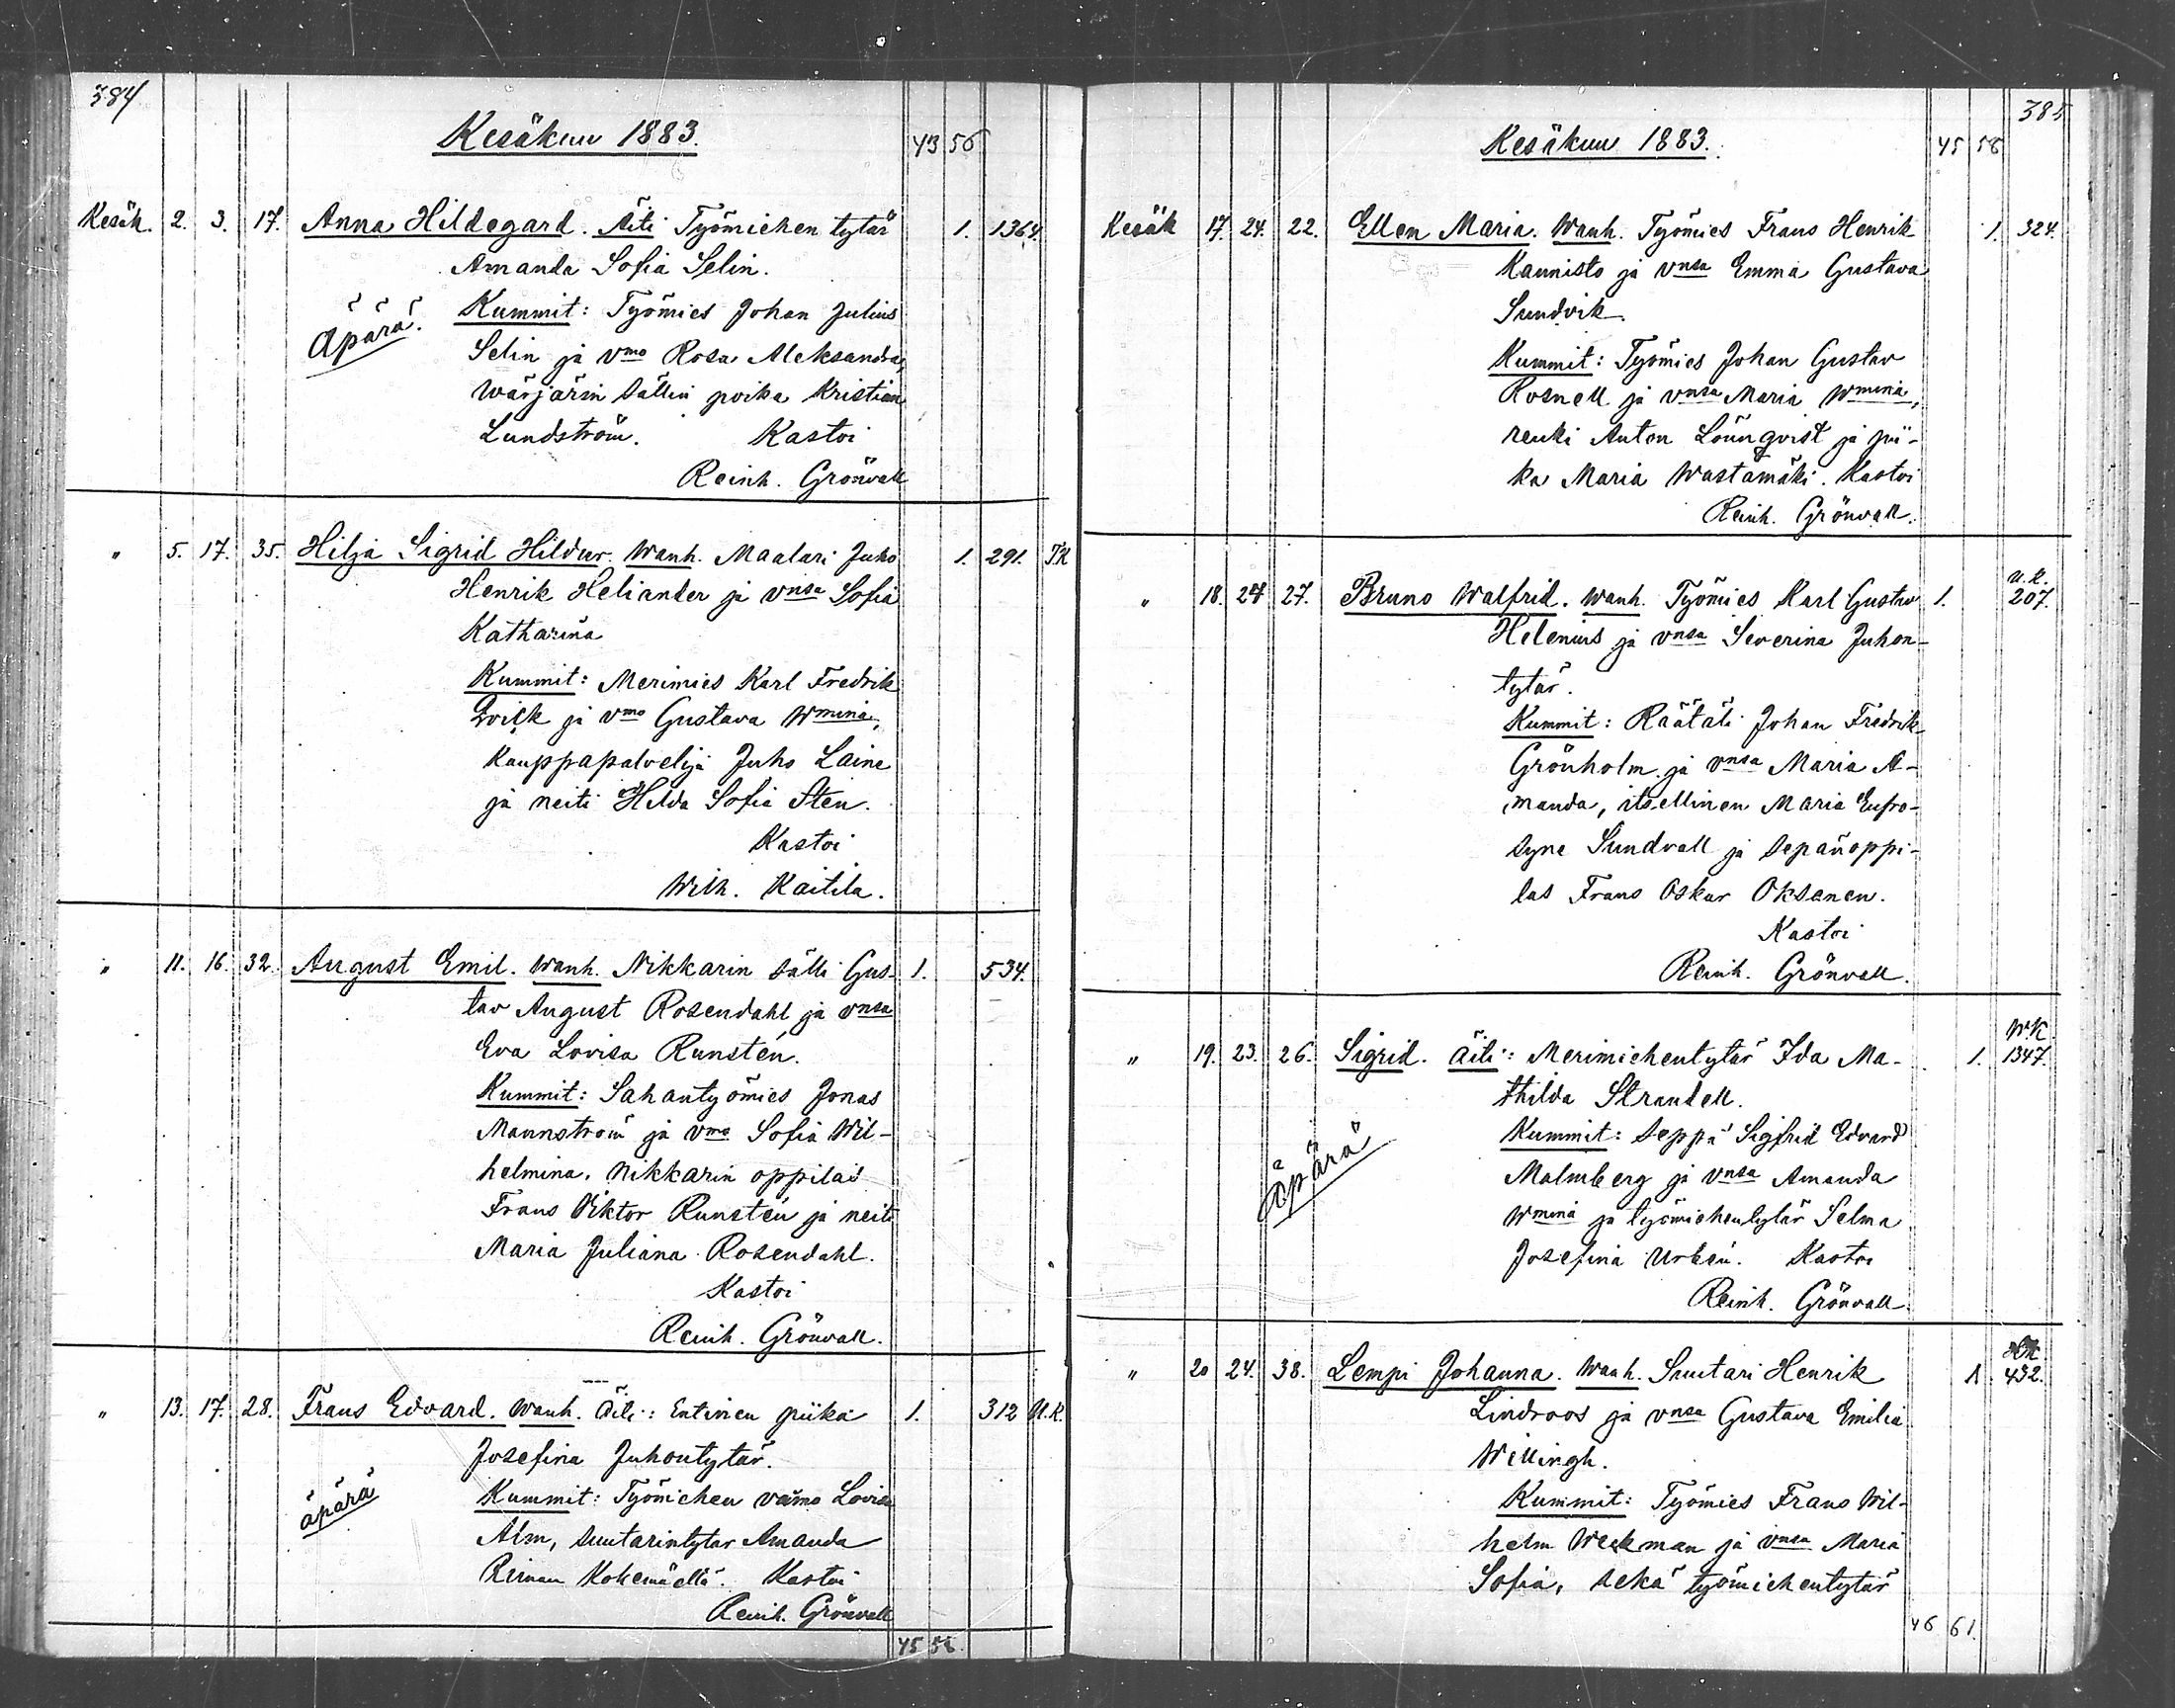 384
Kesäkuu 1883.
43 56
Kesäk. 2. 3. 17. Anna Hildegard. Äiti Työmiehen tytär 1. 1364.
Amanda Sofia Selin.
Äpärä. Kummit: Työmies Johan Julius
Selin ja vmo Rosa Aleksandra,
Wärjärin sällin poika Kristian
Lundström. Kastoi
Reinh. Grönvall
" 5. 17. 35. Hilja Sigrid Hildur. Wanh. Maalari Juho 1. 291. T.K
Henrik Heliander ja vnsa Sofia
Katharina
Kummit: Merimies Karl Fredrik
Qvick ja vmo Gustava Wmina,
Kauppapalvelija Juho Laine
ja neiti Hilda Sofia Sten.
Kastoi
Wilh. Kaitila.
" 11. 16. 32. August Emil. Wanh. Nikkarin sälli Gus- 1. 534.
tav August Rosendahl ja vnsa
Eva Lovisa Runstén.
Kummit: Sahantyömies Jonas
Mannström ja vmo Sofia Wil-
helmina. Nikkarin oppilas
Frans Viktor Runstén ja neiti
Maria Juliana Rosendahl.
Kastoi
Reinh. Grönvall.
" 13. 17. 28. Frans Edvard. Wanh. Äiti: Entinen piika 1. 312 U.K.
Josefina Juhontytär.
äpärä Kummit: Työmiehen vaimo Lovisa
Alm, suutarintytär Amanda
Reiman Kokemäellä. Kastoi
Reinh. Grönvall
45 56.
385
Kesäkuu 1883.
45 56
Kesäk 17. 24. 22. Ellen Maria. Wanh. Työmies Frans Henrik 1. 324.
Kaunisto ja vnsa Emma Gustava
Sundvik.
Kummit: Työmies Johan Gustav
Rosnell ja vnsa Maria Wmina,
renki Anton Lönnqvist ja pii-
ka Maria Wastamäki. Kastoi
Reinh. Grönvall.
U.K.
" 18. 24 27. Bruno Walfrid. Wanh. Työmies Karl Gustav 1. 207.
Helenius ja vnsa Severina Juhon-
tytär.
Kummit: Räätäli Johan Fredrik
Grönholm ja vnsa Maria A-
manda, itsellinen Maria Eufro-
syne Sundvall ja sepänoppi-
las Frans Oskar Oksanen.
Kastoi
Reinh. Grönvall.
W.K
" 19. 23. 26. Sigrid. Äiti: Merimiehentytär Ida Ma- 1. 1347.
thilda Strandell.
Äpärä Kummit: Seppä Sigfrid Edvard
Malmberg ja vnsa Amanda
Wmina ja työmiehentytär Selma
Josefina Urbén. Kastoi
Reinh. Grönvall.
" 20 24. 38. Lempi Johanna. Wanh. Suutari Henrik 1. 432.
Lindroos ja vnsa Gustava Emilia
Willingh.
Kummit: Työmies Frans Wil-
helm Weckman ja vnsa Maria
Sofia, sekä työmiehentytär
46 61.